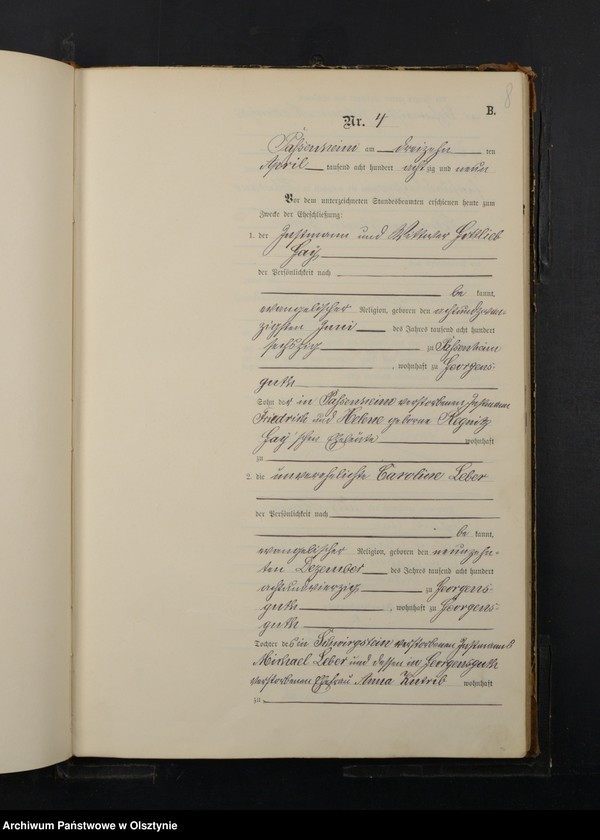 8
B.
Nr. 4
Passenheim am dreizehn ten
April tausend acht hundert achtzig und neun
Vor dem unterzeichneten Standesbeamten erschienen heute zum
Zwecke der Eheschließung:
1. der Instmann und Wittwer Gottlieb
Gay
der Persönlichkeit nach
be kannt,
evangelischer Religion, geboren den achtundzwan-
zigsten Juni des Jahres tausend acht hundert
sechszig zu Passenheim
, wohnhaft zu Georgens-
guth
Sohn der in Passenheim verstorbenen Instmann
Friedrich und Helene geborne
Gay'schen Eheleute wohnhaft
zu
2. die unverehelichte Caroline Leber
der Persönlichkeit nach
be kannt,
evangelischer Religion, geboren den neunzehn-
ten Dezember des Jahres tausend acht hundert
achtundvierzig zu Georgens-
guth , wohnhaft zu Georgens-
guth
Tochter des in verstorbenen Instmanns
Michael Leber und dessen in Georgensguth
verstorbenen Ehefrau Anna wohnhaft
zu
Archiwum Państwowe w Olsztynie